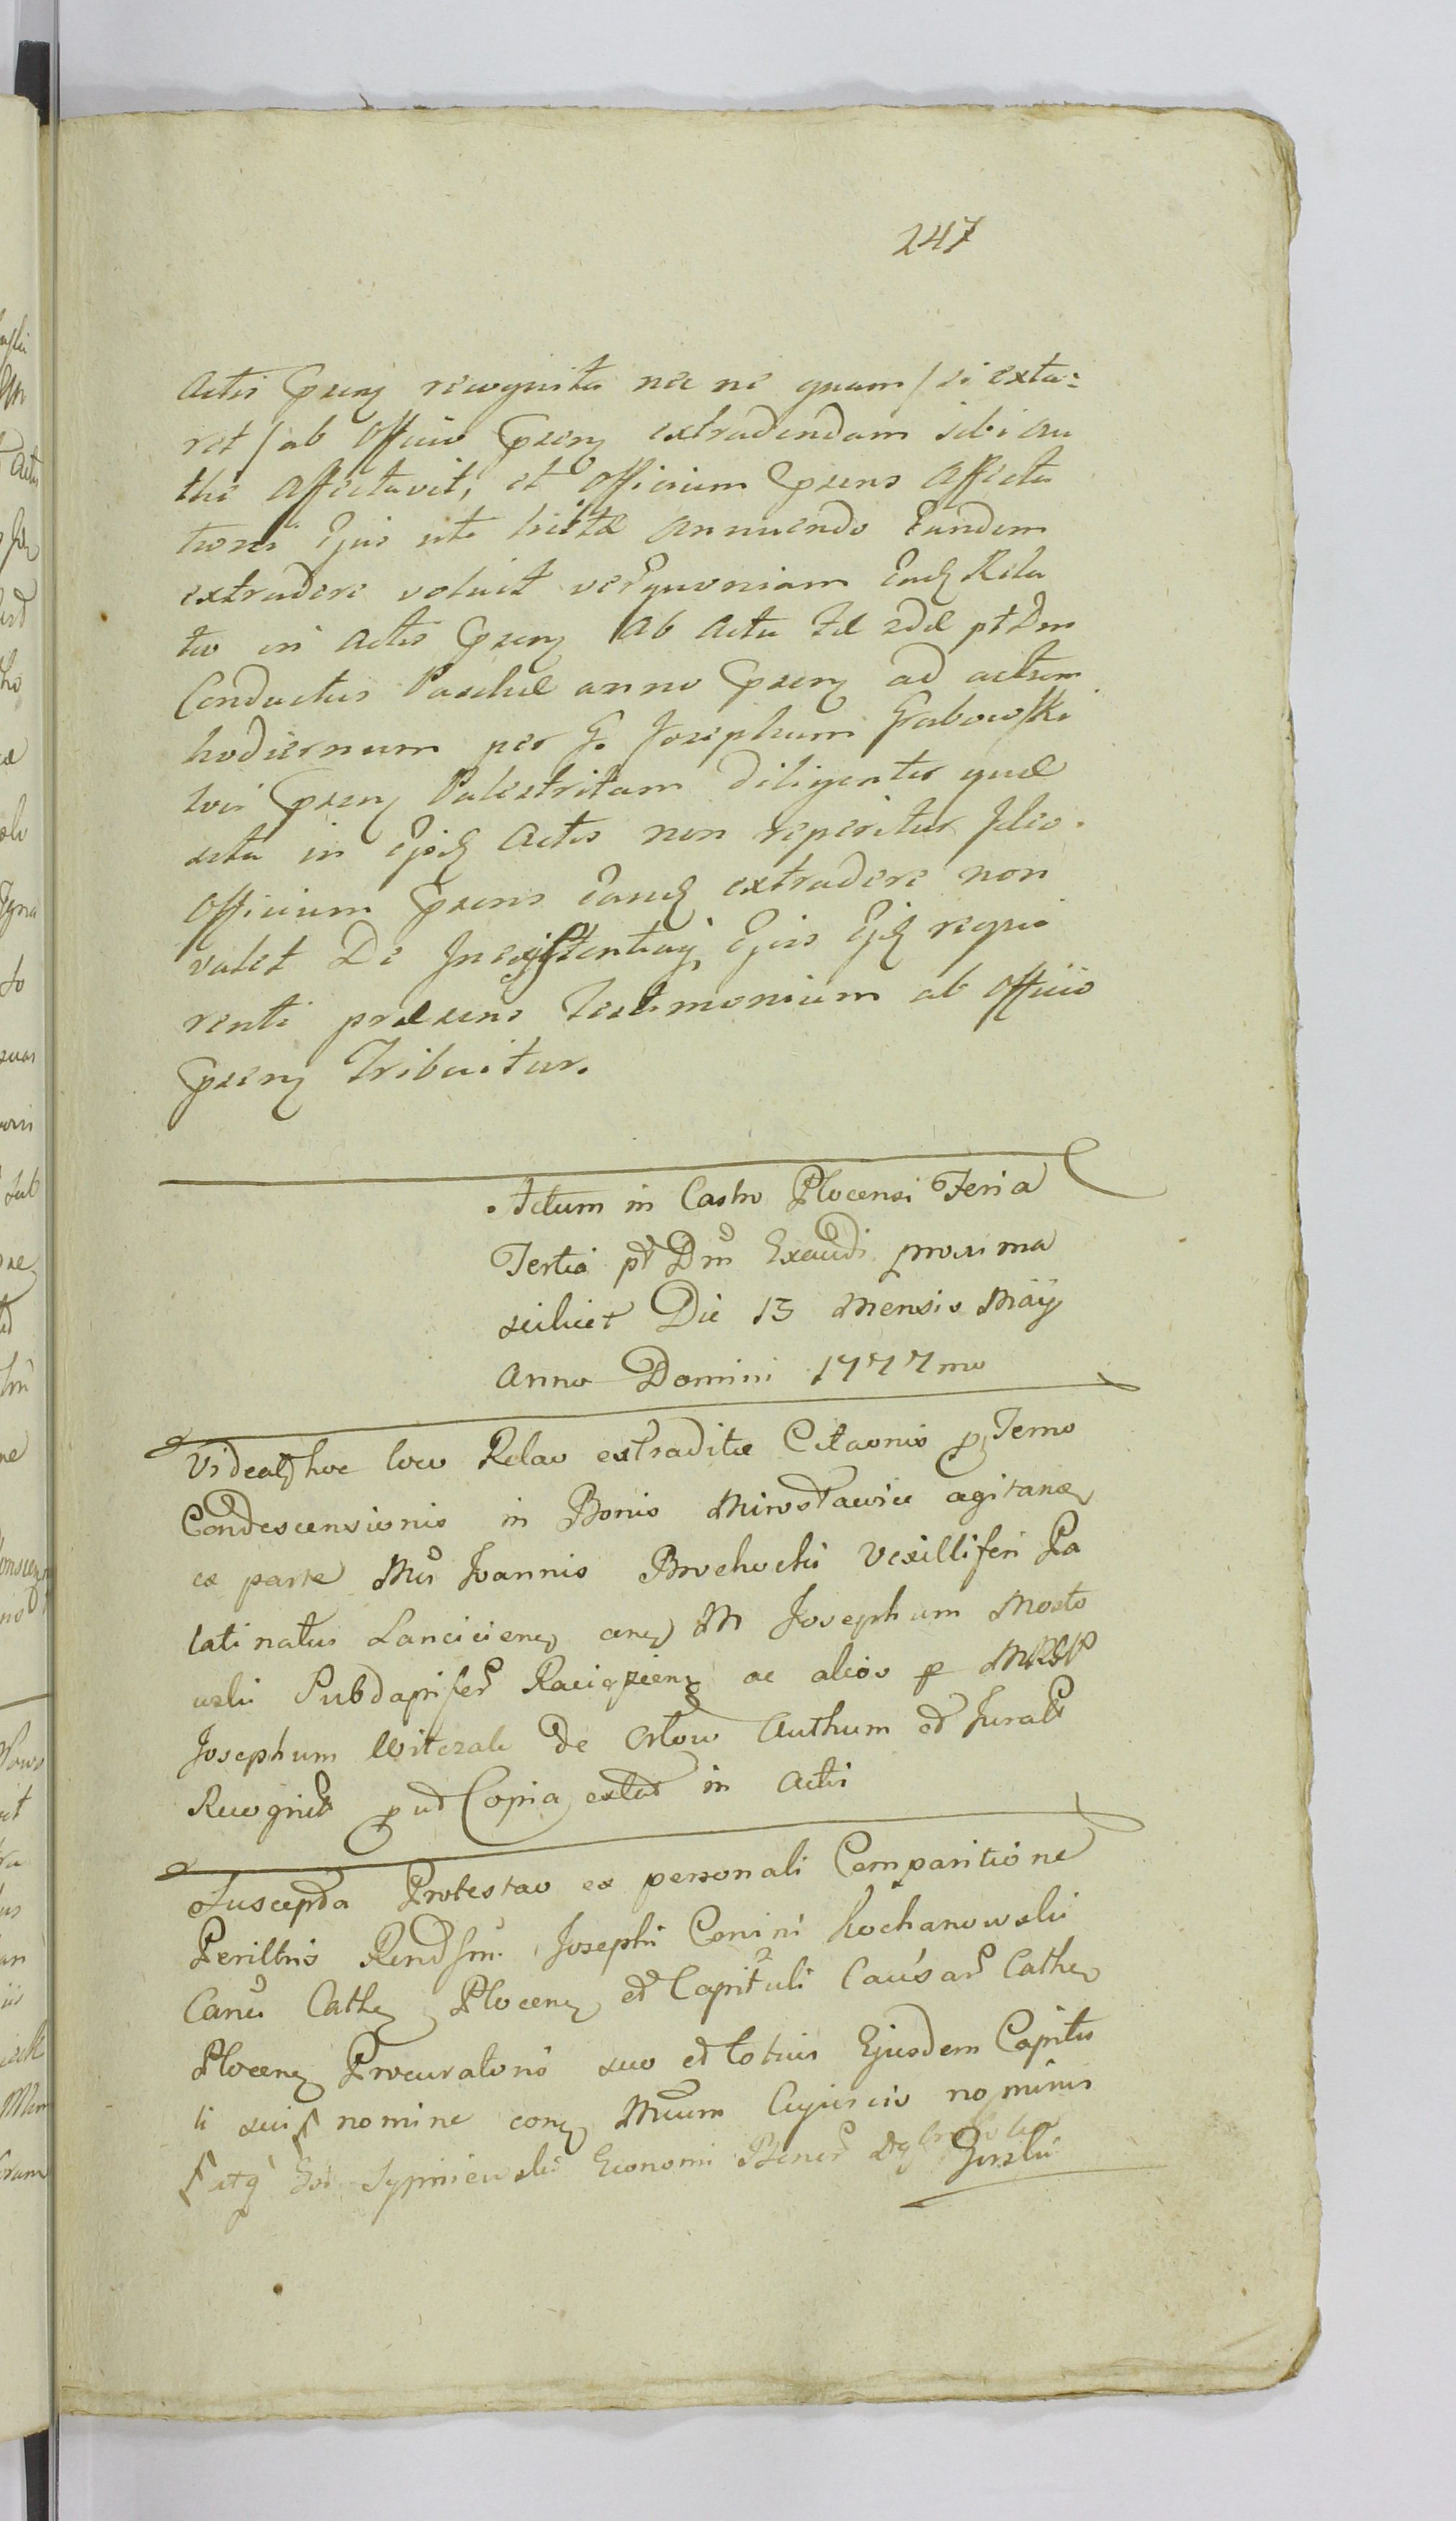 247
Actis Prxens recognita nec ne quam / si exta:
ret / ab Officio Prxens extradendam sibi au
the affectavit, et Officium Prxens Affecta
tioni Ejus uti justæ annuendo Eandem
extradere voluit verum quoniam Eadq Rela
tio in Actis Prxens Ab Actu Fæ 2dæ pt Dm
Conductus Paschæ anno Prxens ad actum
hodiernum per G. Josephum Grabowski
loci Prxens Palestritam diligenter quæ
sita in Ejsdq Actis non reperitur Ideo
Officium Prxens Eandq extradere non
valet De Inexistentiaq Ejus Ejdq requi
renti præsens Testimonium ab Officio
Prxens Tribuitur.
Actum in Castro Plocensi Feria
Tertia pt Dm Exaudi proxima
scilicet Die 13 Mensis Maij
Anno Domini 1777mo
Videatq hoc loco Relao extraditæ Citaonis p Termo
Condescensionis in Bonis Mirosławice agitanæ
ex parte Mci Joannis Brochocki Vexilliferi Pa
latinatus Lanciciens cong M Josephum Mosto
wski Subdapiferm Raciąziens ac alios p
Josephum Witczak de Orłow Authum et Juratt
Recognit p ut Copia extat in Actis
Suscepta Protestao ex personali Comparitione
Perillris Rendssmi Josephi Conini Kochanowski
Canci Cathe Plocens et Capituli Causarm Cathe
Plocens Procuratoris suo et totius Ejusdem Capitu
li sui nomine cong Mcum Cujuscis nominis
etq Gsi Sypniewski Economi Bonor
Gorski